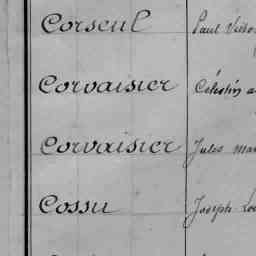 Corseul Paul Victo
Corvaisier Célestin a
Corvaisier Jules mar
Cossu Joseph Lou